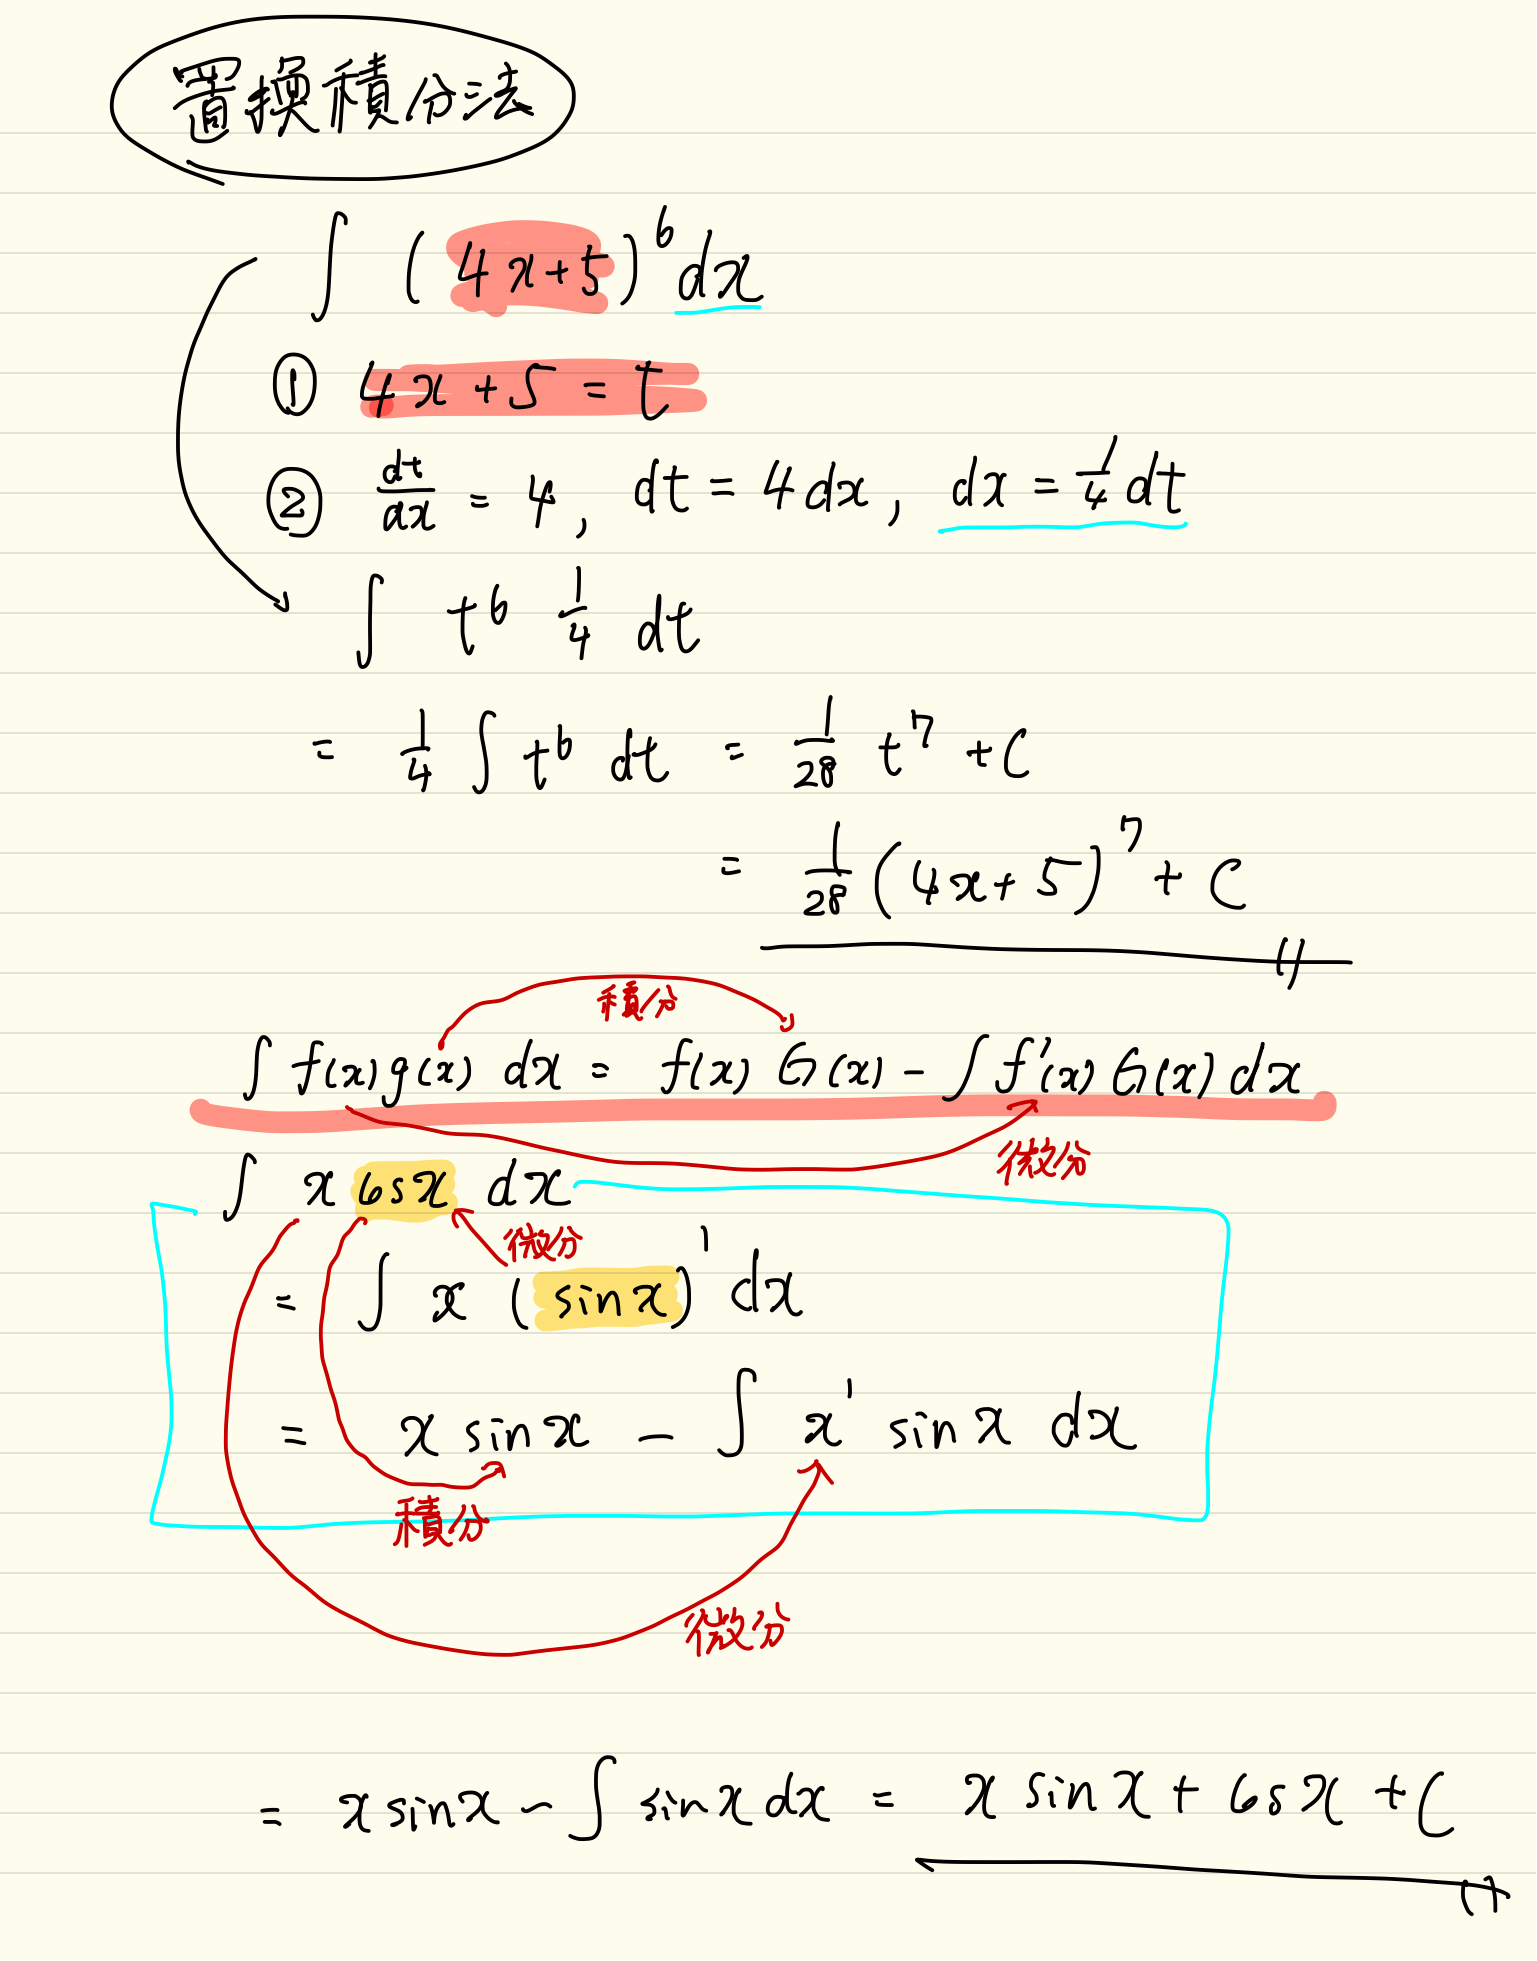 置換積分法
∫ (4x+5)^6 dx
① 4x+5 = t
② dt/dx = 4, dt = 4dx, dx = 1/4 dt
∫ t^6 1/4 dt
= 1/4 ∫ t^6 dt = 1/28 t^7 + C
= 1/28 (4x+5)^7 + C
積分
∫ f(x)g(x) dx = f(x) G(x) - ∫ f'(x) G(x) dx
微分
∫ x cosx dx
微分
= ∫ x (sinx)' dx
= x sinx - ∫ x' sinx dx
積分
微分
= x sinx - ∫ sinx dx = x sinx + cosx + C